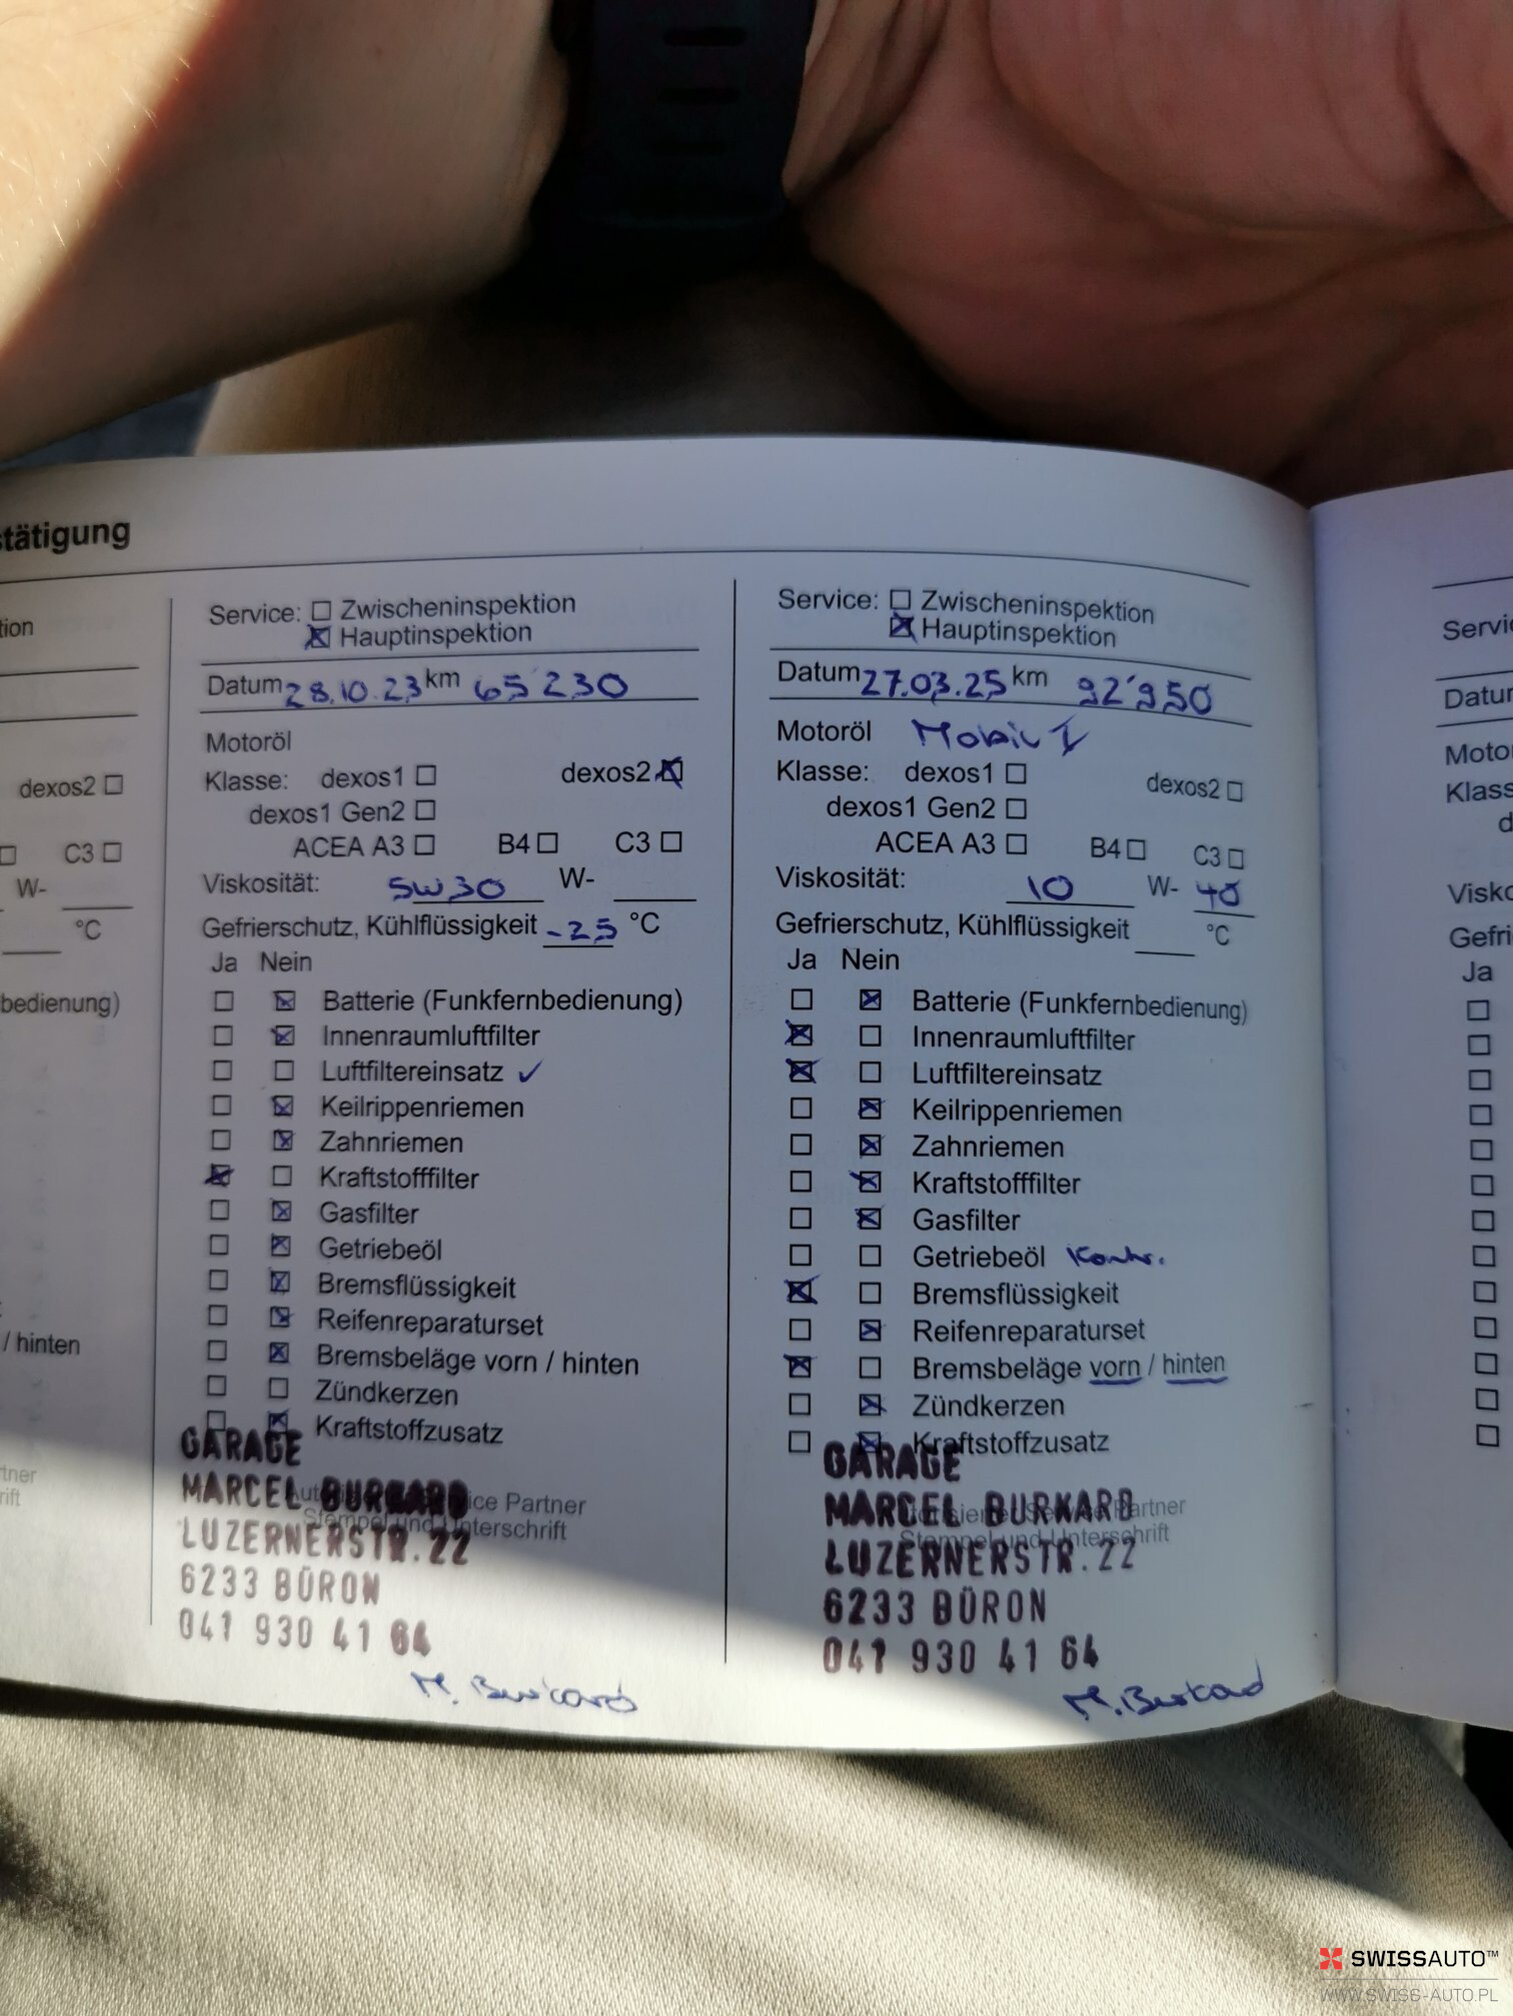 stätigung
tion
dexos2 ☐
☐ C3 ☐
W-
°C
bedienung)
/ hinten
Service: ☐ Zwischeninspektion
☒ Hauptinspektion
Datum 28.10.23 km 65'230
Motoröl
Klasse: dexos1 ☐ dexos2 ☒
dexos1 Gen2 ☐
ACEA A3 ☐ B4 ☐ C3 ☐
Viskosität: 5W30 W-
Gefrierschutz, Kühlflüssigkeit -25 °C
Ja Nein
☐ ☒ Batterie (Funkfernbedienung)
☐ ☒ Innenraumluftfilter
☐ ☐ Luftfiltereinsatz ✓
☐ ☒ Keilrippenriemen
☐ ☒ Zahnriemen
☒ ☐ Kraftstofffilter
☐ ☒ Gasfilter
☐ ☒ Getriebeöl
☐ ☒ Bremsflüssigkeit
☐ ☒ Reifenreparaturset
☐ ☒ Bremsbeläge vorn / hinten
☐ ☐ Zündkerzen
☐ ☒ Kraftstoffzusatz
GARAGE
MARCEL BURKARD
LUZERNERSTR. 22
6233 BÜRON
041 930 41 64
Service Partner
Stempel und Unterschrift
M. Burkard
Service: ☐ Zwischeninspektion
☒ Hauptinspektion
Datum 27.03.25 km 92'950
Motoröl Mobil 1
Klasse: dexos1 ☐ dexos2 ☐
dexos1 Gen2 ☐
ACEA A3 ☐ B4 ☐ C3 ☐
Viskosität: 10 W- 40
Gefrierschutz, Kühlflüssigkeit °C
Ja Nein
☐ ☒ Batterie (Funkfernbedienung)
☒ ☐ Innenraumluftfilter
☒ ☐ Luftfiltereinsatz
☐ ☒ Keilrippenriemen
☐ ☒ Zahnriemen
☐ ☒ Kraftstofffilter
☐ ☒ Gasfilter
☐ ☐ Getriebeöl Kontr.
☒ ☐ Bremsflüssigkeit
☐ ☒ Reifenreparaturset
☒ ☐ Bremsbeläge vorn / hinten
☐ ☒ Zündkerzen
☐ ☒ Kraftstoffzusatz
GARAGE
MARCEL BURKARD
LUZERNERSTR. 22
6233 BÜRON
041 930 41 64
Partner
Stempel und Unterschrift
M. Burkard
Servi
Datu
Moto
Klass
d
Visk
Gefri
Ja
SWISSAUTO™
WWW.SWISS-AUTO.PL